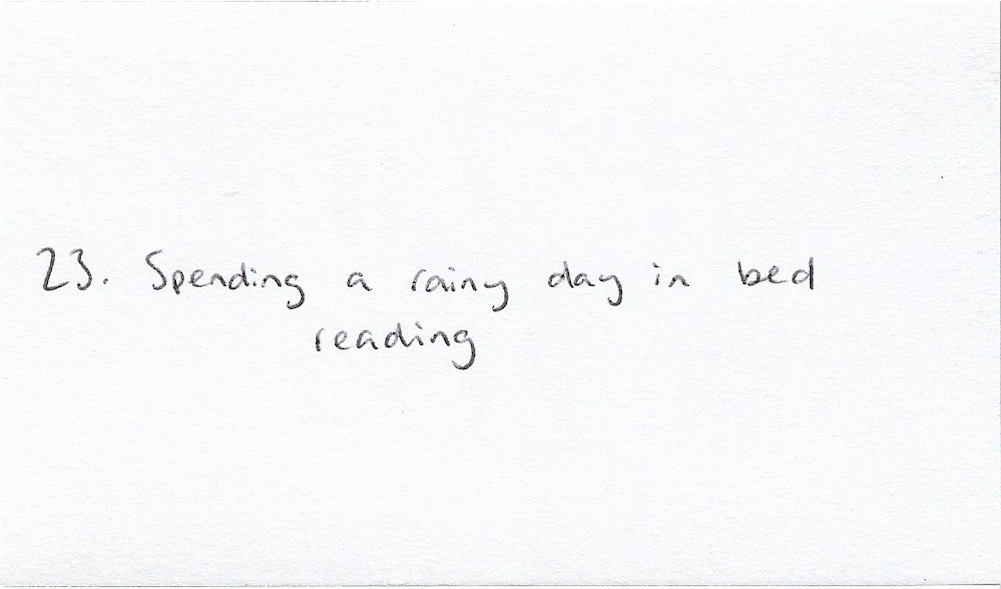 23. Spending a rainy day in bed
reading